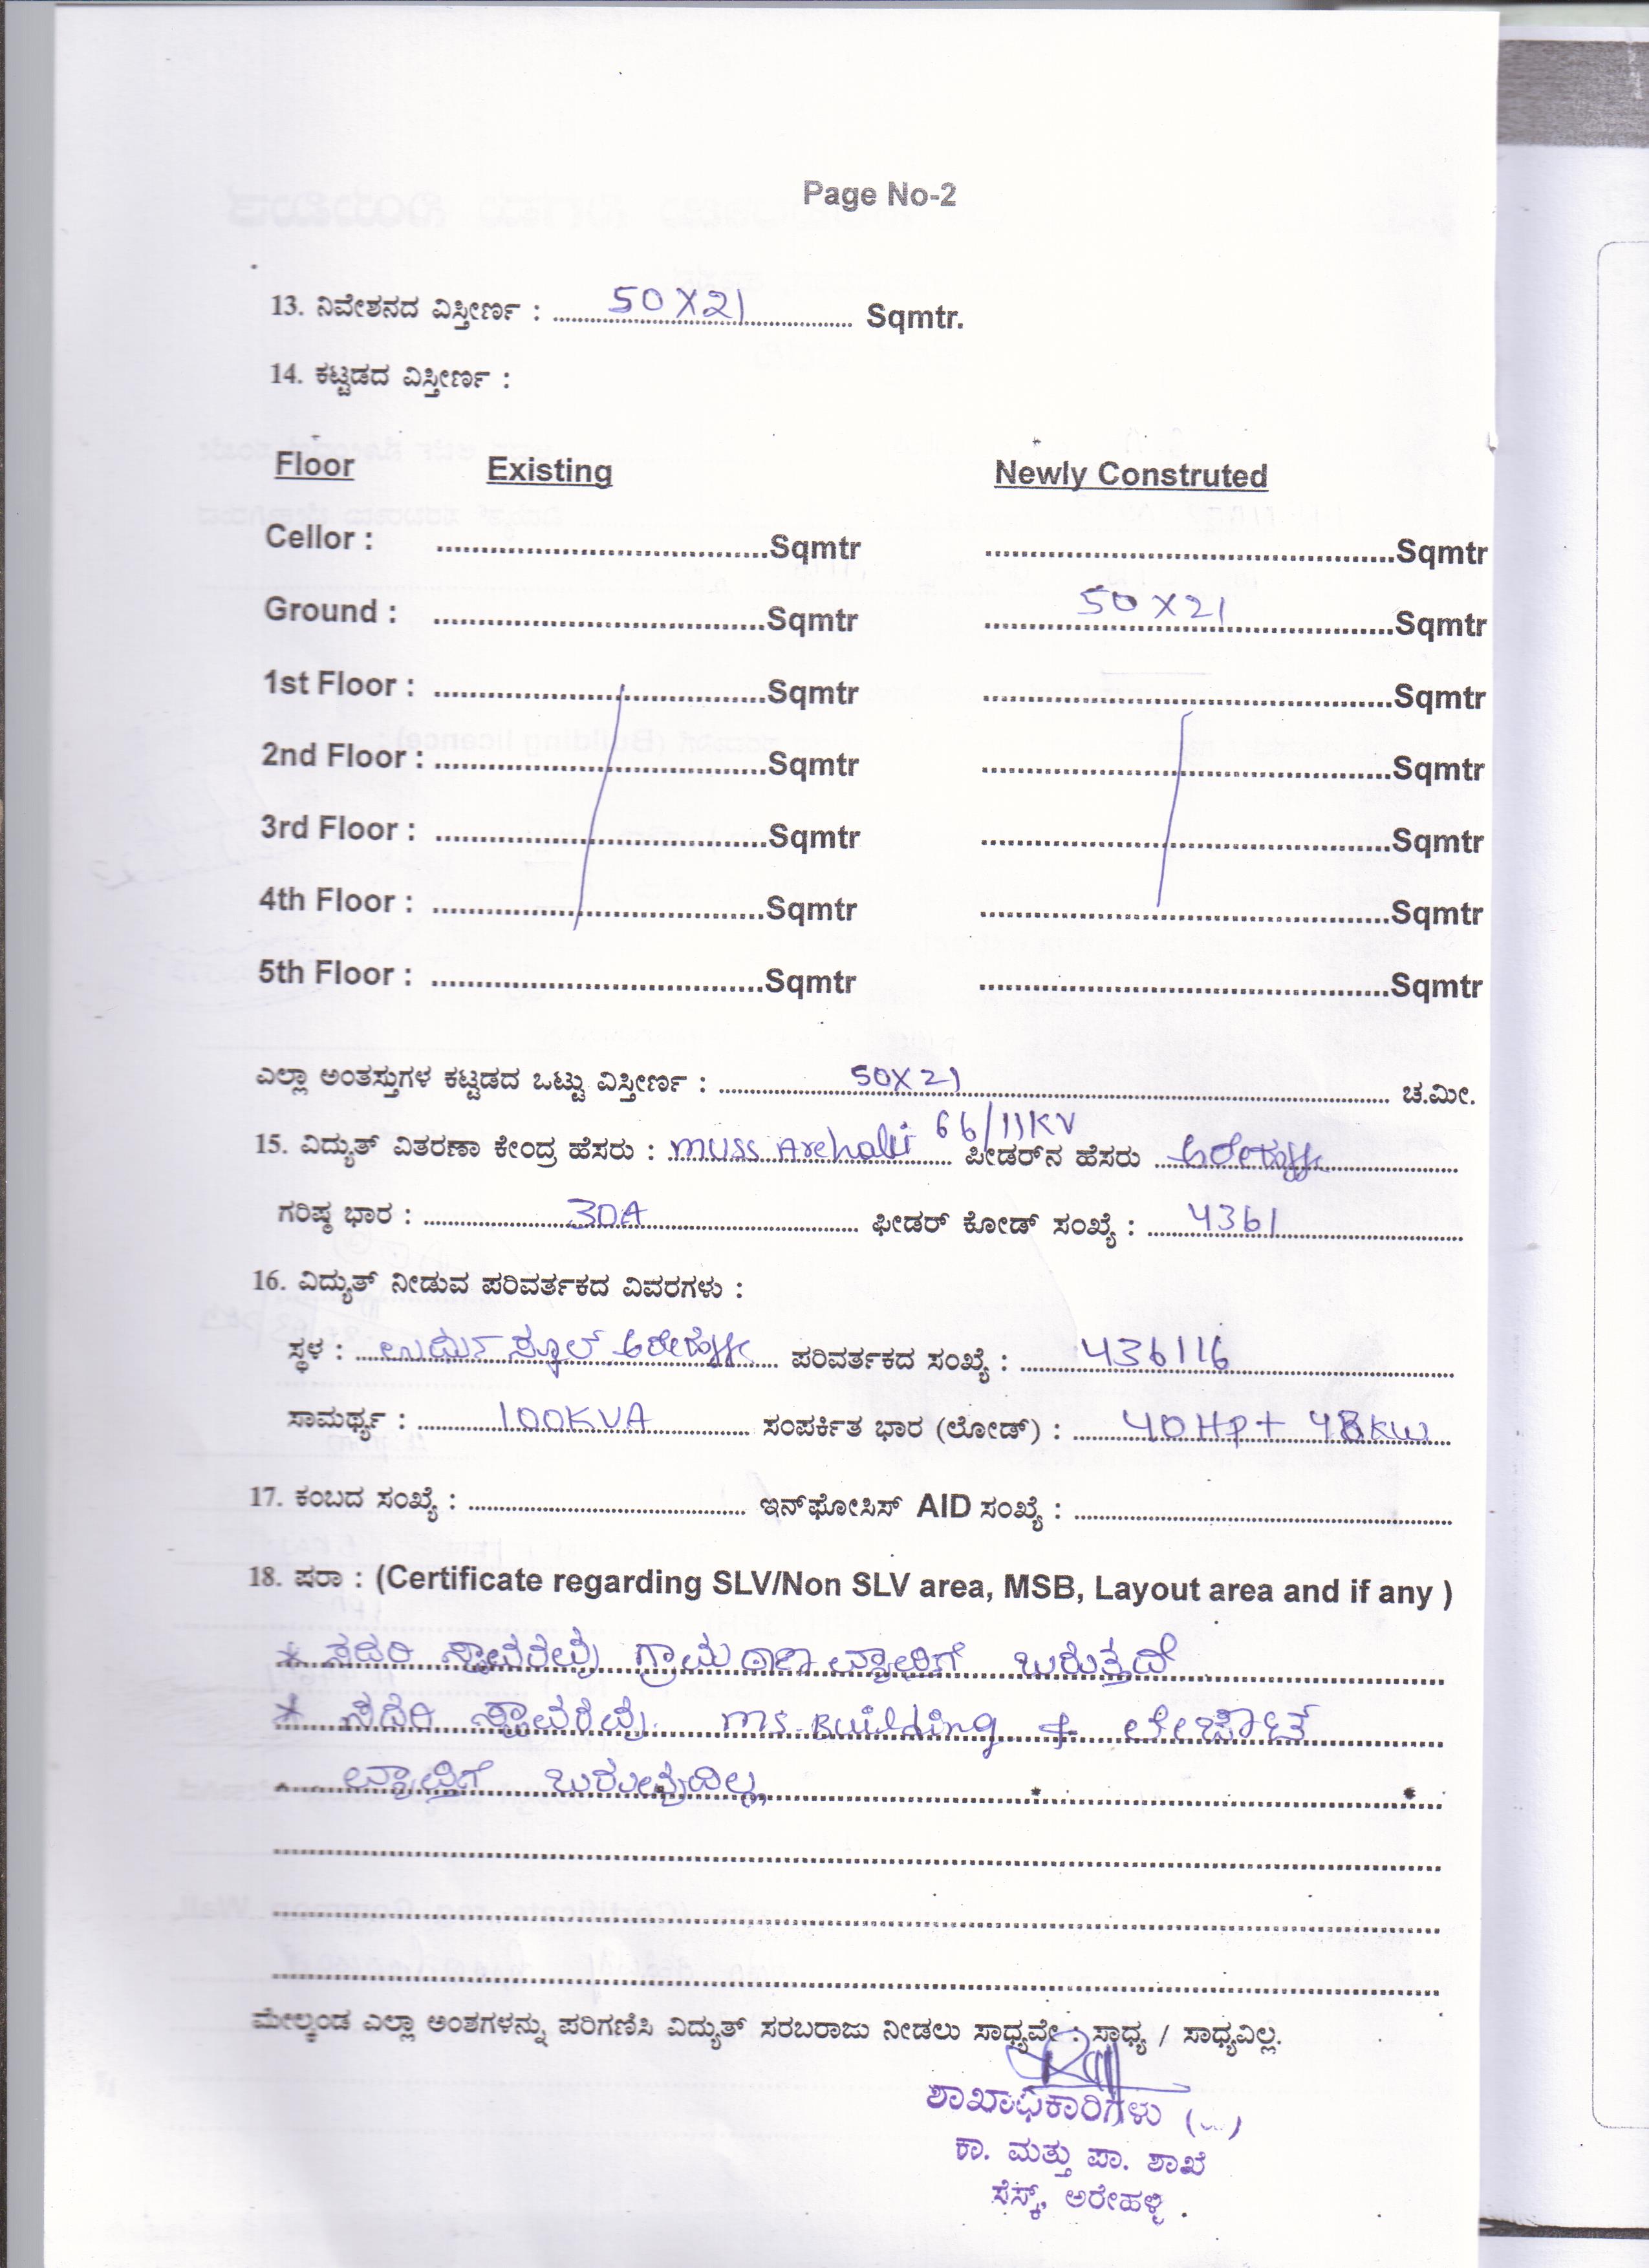 Page No-2
13. ನಿವೇಶನದ ವಿಸ್ತೀರ್ಣ : 50X21 Sqmtr.
14. ಕಟ್ಟಡದ ವಿಸ್ತೀರ್ಣ :
Floor Existing Newly Construted
Cellor : Sqmtr Sqmtr
Ground : Sqmtr 50X21 Sqmtr
1st Floor : Sqmtr Sqmtr
2nd Floor : Sqmtr Sqmtr
3rd Floor : Sqmtr Sqmtr
4th Floor : Sqmtr Sqmtr
5th Floor : Sqmtr Sqmtr
ಎಲ್ಲಾ ಅಂತಸ್ತುಗಳ ಕಟ್ಟಡದ ಒಟ್ಟು ವಿಸ್ತೀರ್ಣ : 50X21 ಚ.ಮೀ.
15. ವಿದ್ಯುತ್ ವಿತರಣಾ ಕೇಂದ್ರ ಹೆಸರು : MUSS Arehalli 66/11KV ಪೀಡರ್‌ನ ಹೆಸರು ಅರೇಹಳ್ಳಿ
ಗರಿಷ್ಠ ಭಾರ : 30A ಫೀಡರ್ ಕೋಡ್ ಸಂಖ್ಯೆ : 4361
16. ವಿದ್ಯುತ್ ನೀಡುವ ಪರಿವರ್ತಕದ ವಿವರಗಳು :
ಸ್ಥಳ : ಉರ್ದು ಸ್ಕೂಲ್ ಅರೇಹಳ್ಳಿ ಪರಿವರ್ತಕದ ಸಂಖ್ಯೆ : 436116
ಸಾಮರ್ಥ್ಯ : 100KVA ಸಂಪರ್ಕಿತ ಭಾರ (ಲೋಡ್) : 40HP + 48KW
17. ಕಂಬದ ಸಂಖ್ಯೆ : ಇನ್‌ಫೋಸಿಸ್ AID ಸಂಖ್ಯೆ :
18. ಷರಾ : (Certificate regarding SLV/Non SLV area, MSB, Layout area and if any )
* ಸದರಿ ಸ್ಥಾವರವು ಗ್ರಾಮಠಾಣ ವ್ಯಾಪ್ತಿಗೆ ಬರುತ್ತದೆ
* ಸದರಿ ಸ್ಥಾವರವು ms.Building + ಲೇಔಟ್
ವ್ಯಾಪ್ತಿಗೆ ಬರುವುದಿಲ್ಲ
ಮೇಲ್ಕಂಡ ಎಲ್ಲಾ ಅಂಶಗಳನ್ನು ಪರಿಗಣಿಸಿ ವಿದ್ಯುತ್ ಸರಬರಾಜು ನೀಡಲು ಸಾಧ್ಯವೇ : ಸಾಧ್ಯ / ಸಾಧ್ಯವಿಲ್ಲ.
ಶಾಖಾಧಿಕಾರಿಗಳು
ಕಾ. ಮತ್ತು ಪಾ. ಶಾಖೆ
ಸೆಸ್ಕ್, ಅರೇಹಳ್ಳಿ.